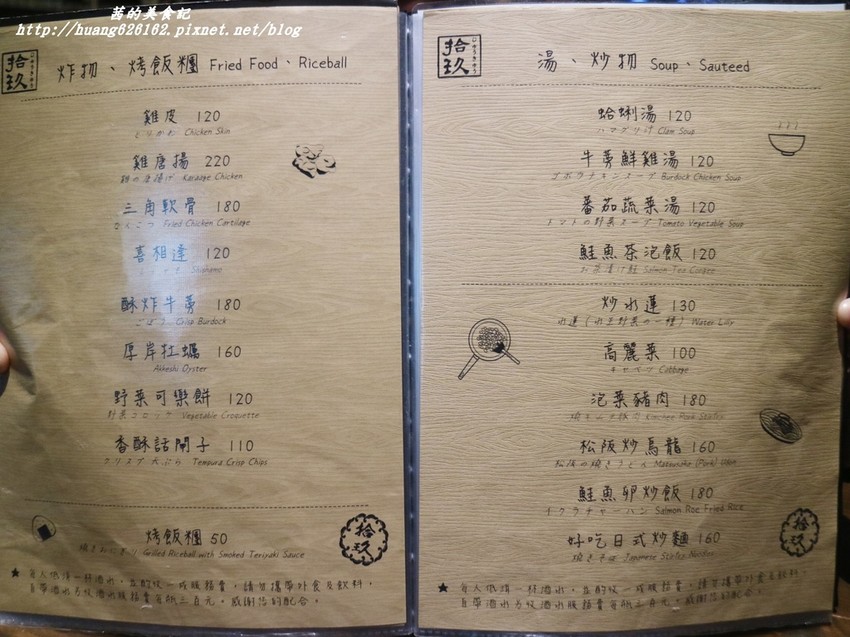 茜的美食記
http://huang626162.pixnet.net/blog
拾玖
炸物、烤飯糰 Fried Food、Riceball
雞皮 120
とりかわ Chicken Skin
雞唐揚 220
鶏の唐揚げ Karaage Chicken
三角軟骨 180
なんこつ Fried Chicken Cartilage
喜相逢 120
Shishamo
酥炸牛蒡 180
ごぼう Crisp Burdock
厚岸牡蠣 160
Akkeshi Oyster
野菜可樂餅 120
野菜コロッケ Vegetable Croquette
香酥話閘子 110
クリスプ天ぷら Tempura Crisp Chips
烤飯糰 50
焼きおにぎり Grilled Riceball with Smoked Teriyaki Sauce
拾玖
★ 每人低消一杯酒水，並酌收一成服務費，請勿攜帶外食及飲料，
自帶酒水另收酒水服務費每瓶三百元。感謝您的配合。
拾玖
湯、炒物 Soup、Sauteed
蛤蜊湯 120
ハマグリ汁 Clam Soup
牛蒡鮮雞湯 120
ゴボウチキンスープ Burdock Chicken Soup
蕃茄蔬菜湯 120
トマトの野菜スープ Tomato Vegetable Soup
鮭魚茶泡飯 120
お茶漬け鮭 Salmon Tea Congee
炒水蓮 130
水蓮（水生野菜の一種） Water Lily
高麗菜 100
キャベツ Cabbage
泡菜豬肉 180
Kimchee Pork Stirfry
松阪炒烏龍 160
松阪の焼きうどん Matsusaka (Pork) Udon
鮭魚卵炒飯 180
イクラチャーハン Salmon Roe Fried Rice
好吃日式炒麵 160
焼きそば Japanese Stirfry Noodles
拾玖
★ 每人低消一杯酒水，並酌收一成服務費，請勿攜帶外食及飲料，
自帶酒水另收酒水服務費每瓶三百元。感謝您的配合。